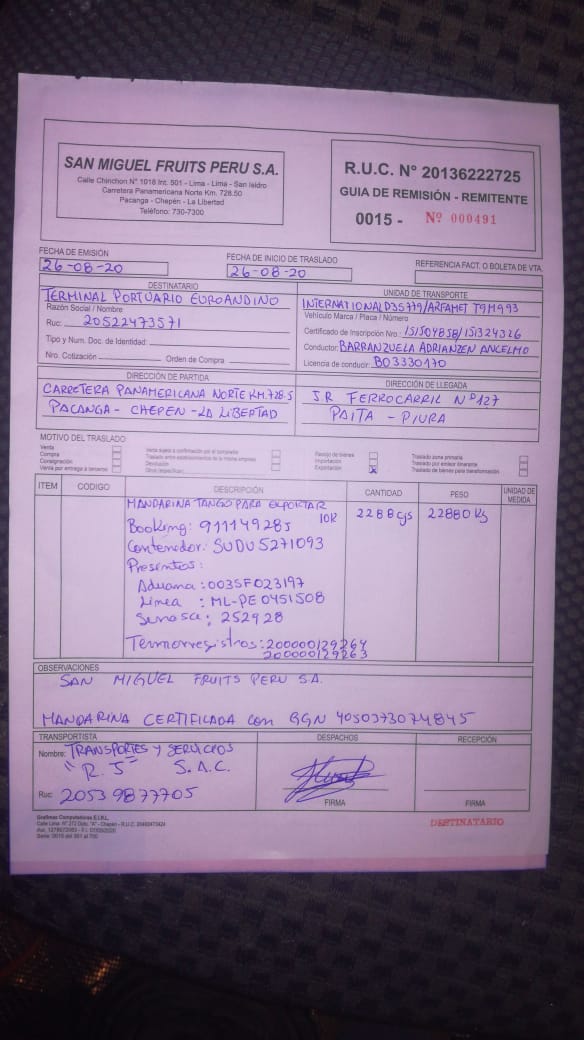 SAN MIGUEL FRUITS PERU S.A.
Calle Chinchon N° 1018 Int. 501 - Lima - Lima - San Isidro
Carretera Panamericana Norte Km. 728.50
Pacanga - Chepén - La Libertad
Teléfono: 730-7300
R.U.C. N° 20136222725
GUIA DE REMISIÓN - REMITENTE
0015 - Nº 000491
FECHA DE EMISIÓN
26-08-20
FECHA DE INICIO DE TRASLADO
26-08-20
REFERENCIA FACT. O BOLETA DE VTA.
DESTINATARIO
TERMINAL PORTUARIO EUROANDINO
Razón Social / Nombre
Ruc: 20522473571
Tipo y Num. Doc. de Identidad:
Nro. Cotización Orden de Compra
UNIDAD DE TRANSPORTE
INTERNATIONAL P3S779/ARFAMET T9M993
Vehículo Marca / Placa / Número
Certificado de Inscripción Nro.: 151504858/151324326
Conductor: BARRANZUELA ADRIANZEN ANCELMO
Licencia de conducir: B03330170
DIRECCIÓN DE PARTIDA
CARRETERA PANAMERICANA NORTE KM.728.5
PACANGA - CHEPEN - LA LIBERTAD
DIRECCIÓN DE LLEGADA
JR FERROCARRIL Nº127
PAITA - PIURA
MOTIVO DEL TRASLADO
Venta
Compra
Consignación
Venta por entrega a terceros
Venta sujeta a confirmación por el comprador
Traslado entre establecimientos de la misma empresa
Devolución
Importación
Exportación X
Traslado zona primaria
Traslado por emisor itinerante
Traslado de bienes para transformación
ITEM CODIGO DESCRIPCIÓN CANTIDAD PESO UNIDAD DE MEDIDA
MANDARINA TANGO PARA EXPORTAR
10K 2288 cjs 22880 Kg
Booking: 911149285
Contenedor: SUDU5271093
Presentos:
Aduana: 003SF023197
Linea : ML-PE0451508
Senasa: 252928
Termorregistros: 200000129264
200000129263
OBSERVACIONES
SAN MIGUEL FRUITS PERU S.A.
MANDARINA CERTIFICADA con GGN 4050373074845
TRANSPORTISTA
Nombre: TRANSPORTES Y SERVICIOS
"R.J" S.A.C.
Ruc: 20539877705
DESPACHOS
FIRMA
RECEPCIÓN
FIRMA
DESTINATARIO